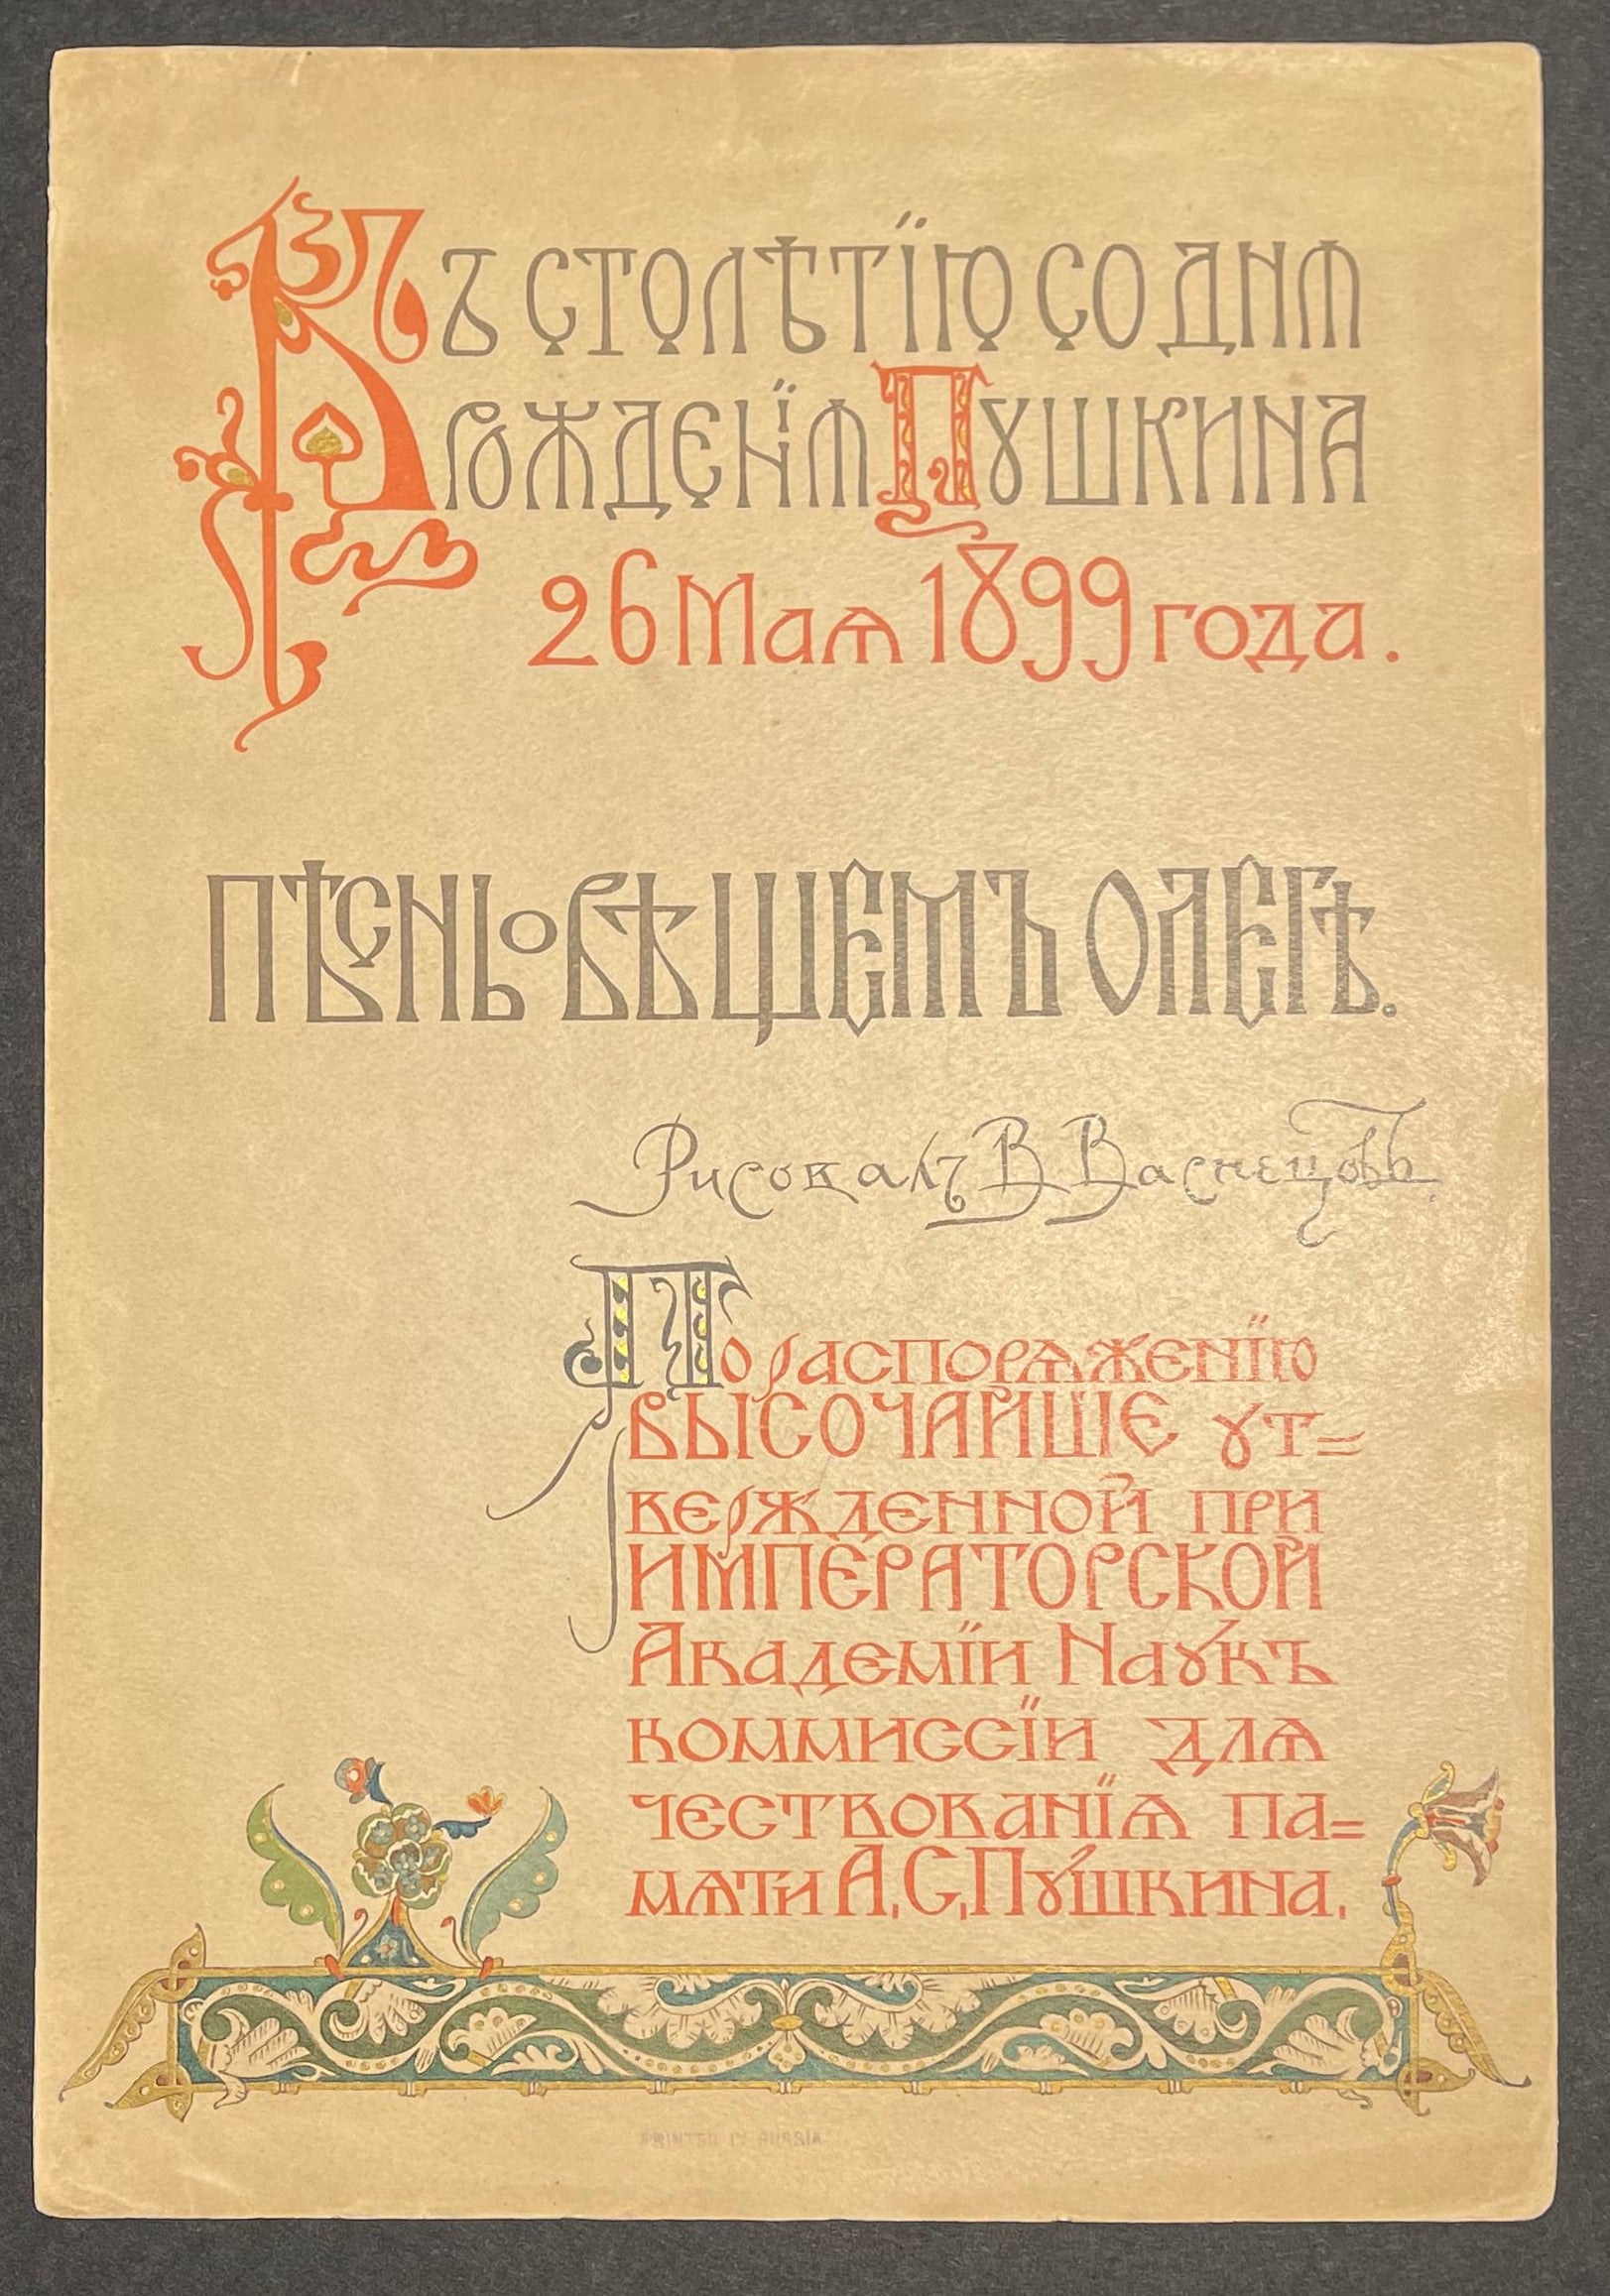 Къ столѣтію со дня
рожденія Пушкина
26 Мая 1899 года.
Пѣснь о Вѣщемъ Олегѣ.
Рисовалъ В Васнецовъ.
По распоряженію
ВЫСОЧАЙШЕ ут=
вержденной при
ИМПЕРАТОРСКОЙ
Академіи Наукъ
коммиссіи для
чествованія па=
мяти А. С. Пушкина.
PRINTED IN RUSSIA